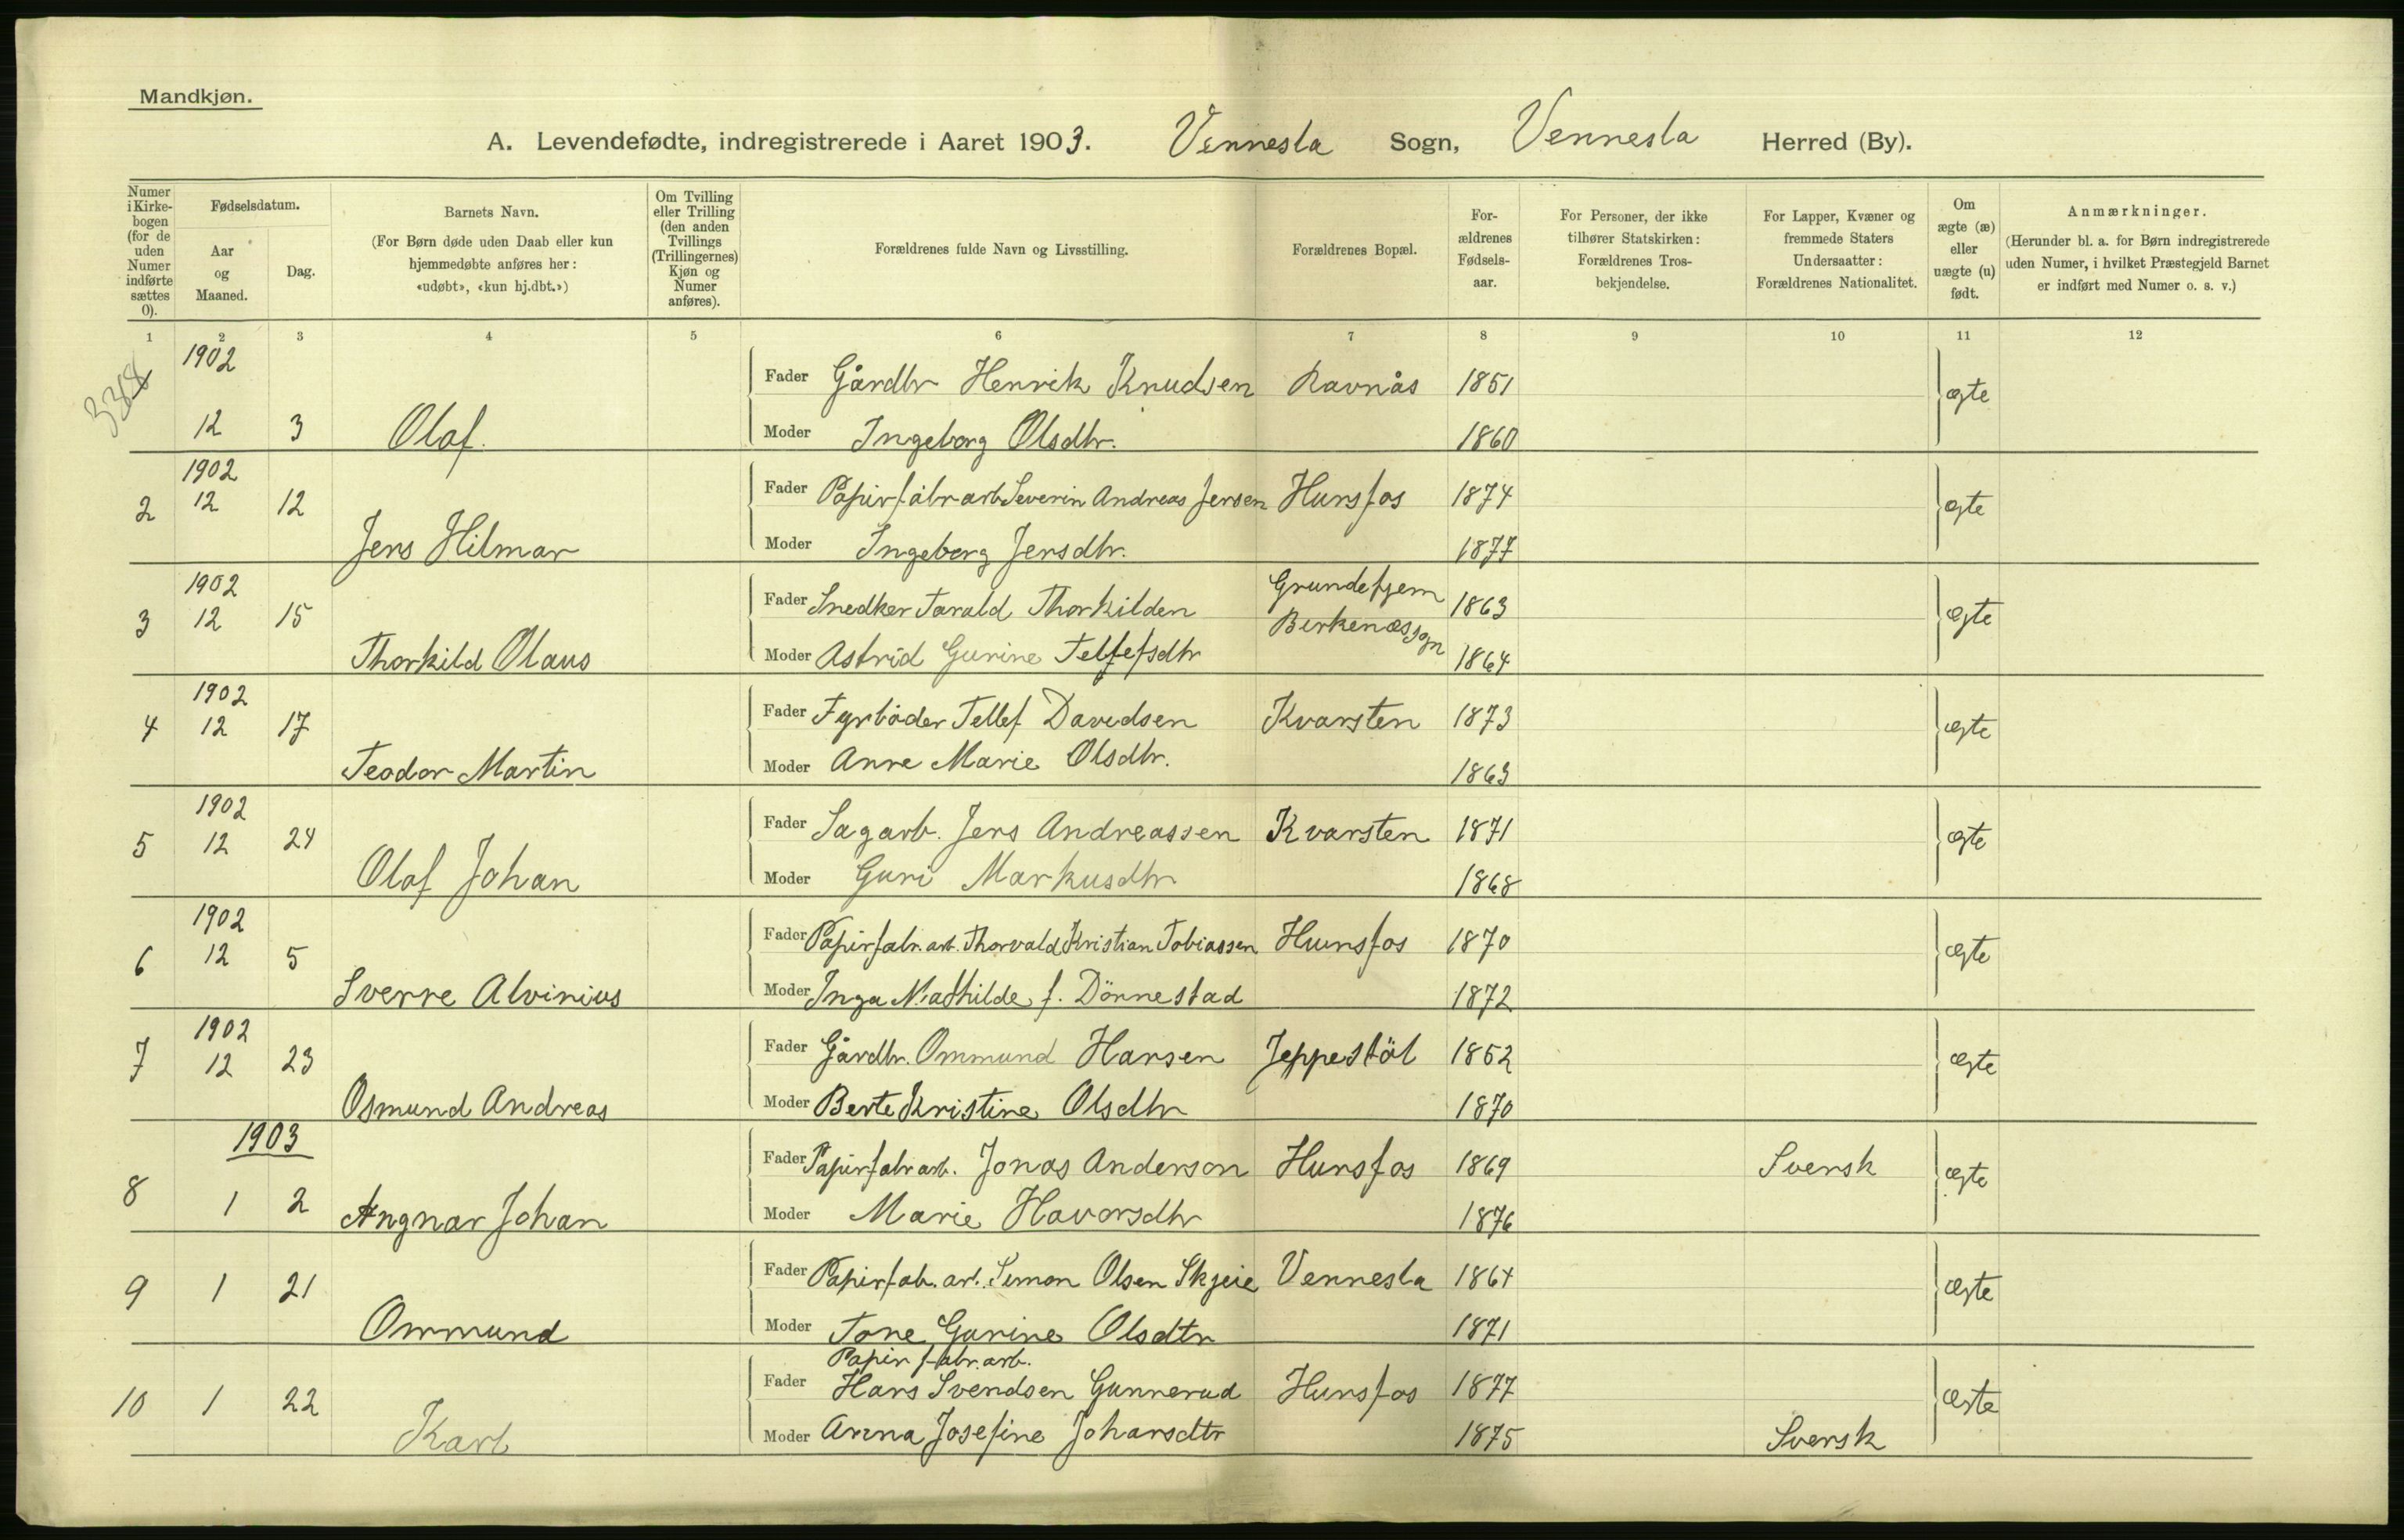 Mandkjøn.
A. Levendefødte, indregistrerede i Aaret 1903. Vennesla Sogn, Vennesla Herred (By).
Numer i Kirke-bogen (for de uden Numer indførte sættes 0).
Fødselsdatum.
Aar og Maaned.
Dag.
Barnets Navn.
(For Børn døde uden Daab eller kun hjemmedøbte anføres her: «udøbt», «kun hj.dbt.»)
Om Tvilling eller Trilling (den anden Tvillings (Trillingernes) Kjøn og Numer anføres).
Forældrenes fulde Navn og Livsstilling.
Forældrenes Bopæl.
For-ældrenes Fødsels-aar.
For Personer, der ikke tilhører Statskirken: Forældrenes Tros-bekjendelse.
For Lapper, Kvæner og fremmede Staters Undersaatter: Forældrenes Nationalitet.
Om ægte (æ) eller uægte (u) født.
Anmærkninger.
(Herunder bl. a. for Børn indregistrerede uden Numer, i hvilket Præstegjeld Barnet er indført med Numer o. s. v.)
1 2 3 4 5 6 7 8 9 10 11 12
1902
Fader Gårdbr Henrik Knudsen Ravnås 1851 ægte
12 3 Olaf. Moder Ingeborg Olsdtr. 1860
1902
2 12 12 Fader Papirfabr arb Severin Andreas Jensen Hunsfos 1874 ægte
Jens Hilmar Moder Ingeborg Jensdtr. 1877
1902
3 12 15 Fader Snedker Tarald Thorkilden Grundetjern Birkenæs sogn 1863 ægte
Thorkild Olaus Moder Astrid Gurine Tellefsdtr 1864
1902
4 12 17 Fader Fyrbøder Tellef Davidsen Kvarsten 1873 ægte
Teodor Martin Moder Anne Marie Olsdtr. 1863
1902
5 12 24 Fader Sagarb. Jens Andreassen Kvarsten 1871 ægte
Olaf Johan Moder Guri Markusdtr 1868
1902
6 12 5 Fader Papirfabr. arb. Thorvald Kristian Tobiassen Hunsfos 1870 ægte
Sverre Alvinius Moder Inga Mathilde f. Dönnestad 1872
1902
7 12 23 Fader Gårdbr. Ommund Hansen Jeppestöl 1852 ægte
Osmund Andreas Moder Berte Kristine Olsdtr 1870
1903
8 1 2 Fader Papirfabr arb. Jonas Anderson Hunsfos 1869 Svensk ægte
Angnar Johan Moder Marie Havorsdtr 1876
9 1 21 Fader Papirfab. arb. Simon Olsen Skjeie Vennesla 1864 ægte
Ommund Moder Tone Gurine Olsdtr 1871
Papir fabr. arb.
10 1 22 Fader Hans Svendsen Gunnerud Hunsfos 1877 ægte
Karl Moder Anna Josefine Johansdtr 1875 Svensk